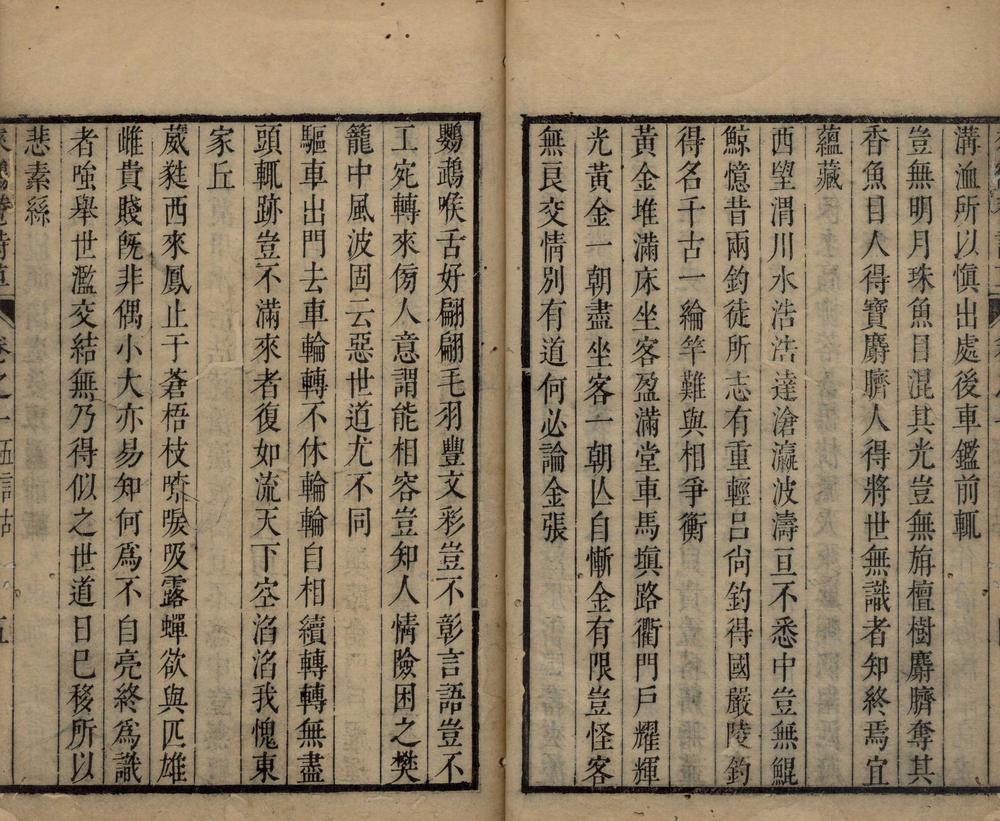 溝洫所以愼出處後車鑑前輒
豈無明月珠魚目混其光豈無旃檀樹麝臍奪其
香魚目人得寶麝臍人得將世無識者知終焉宜
蘊藏
西望渭川水浩浩達滄瀛波濤亘不悉中豈無鯤
鯨憶昔兩釣徒所志有重輕吕尙釣得國嚴陵釣
得名千古一綸竿難與相爭衡
黃金堆滿床坐客盈滿堂車馬塡路衢門戶耀輝
光黃金一朝盡坐客一朝亾自慚金有限豈怪客
無良交情別有道何必論金張
鸚鵡喉舌好翩翩毛羽豐文彩豈不彰言語豈不
工宛轉來傍人意謂能相容豈知人情險困之樊
籠中風波固云惡世道尤不同
驅車出門去車輪轉不休輪輪自相續轉轉無盡
頭輒跡豈不滿來者復如流天下空滔滔我愧東
家丘
葳蕤西來鳳止于蒼梧枝嘒嘒吸露蟬欲與匹雄
雌貴賤旣非偶小大亦易知何爲不自亮終爲識
者嗤舉世濫交結無乃得似之世道日已移所以
悲素絲
卷之十五詩
五